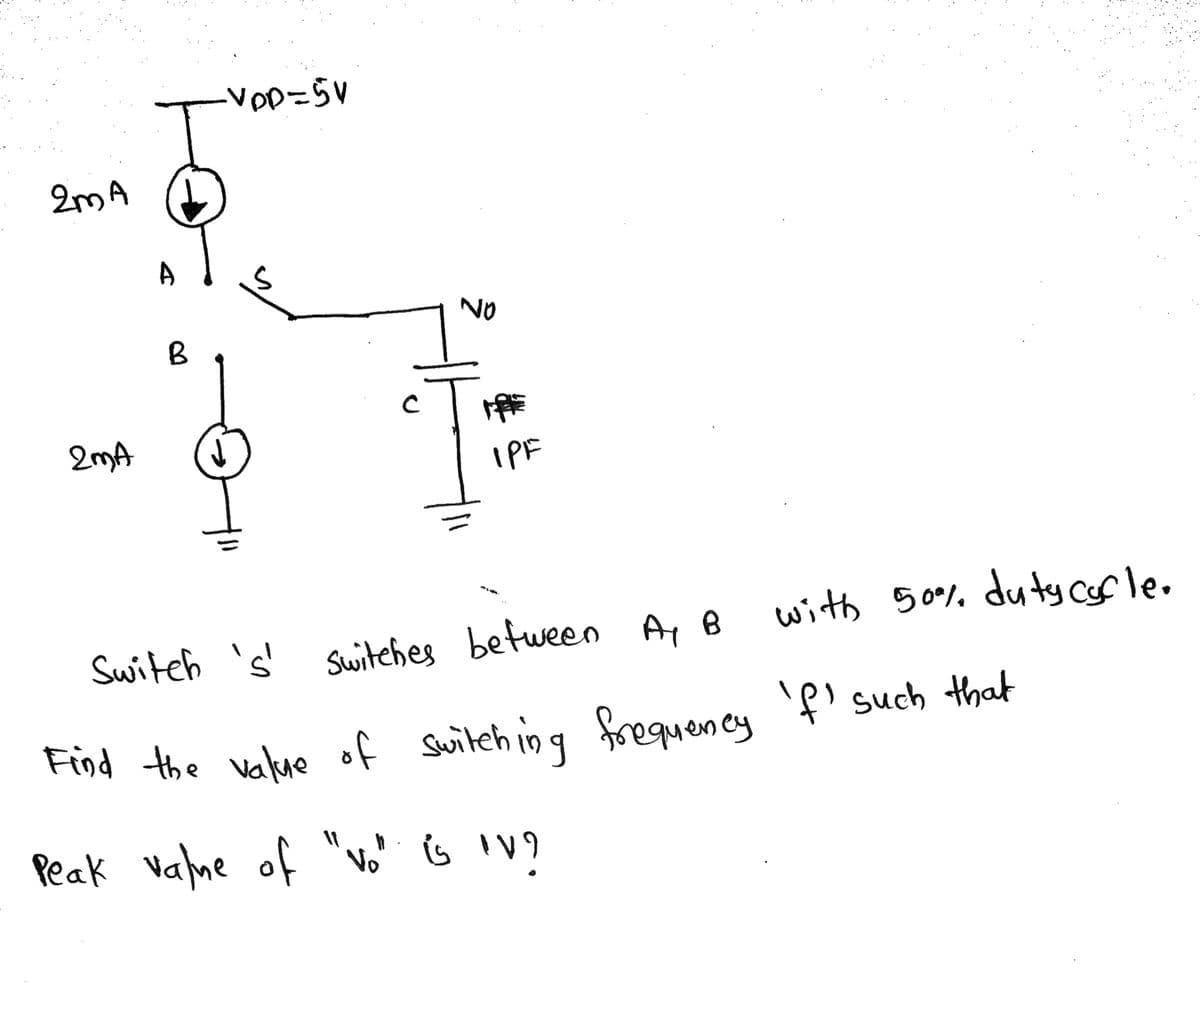 VDD=5V
2mA
A
S
VO
B
C
1PF
2mA
Switch 's' switches between A, B with 50% duty cycle.
Find the value of switching frequency 'f' such that
Peak value of "Vo" is 1V?